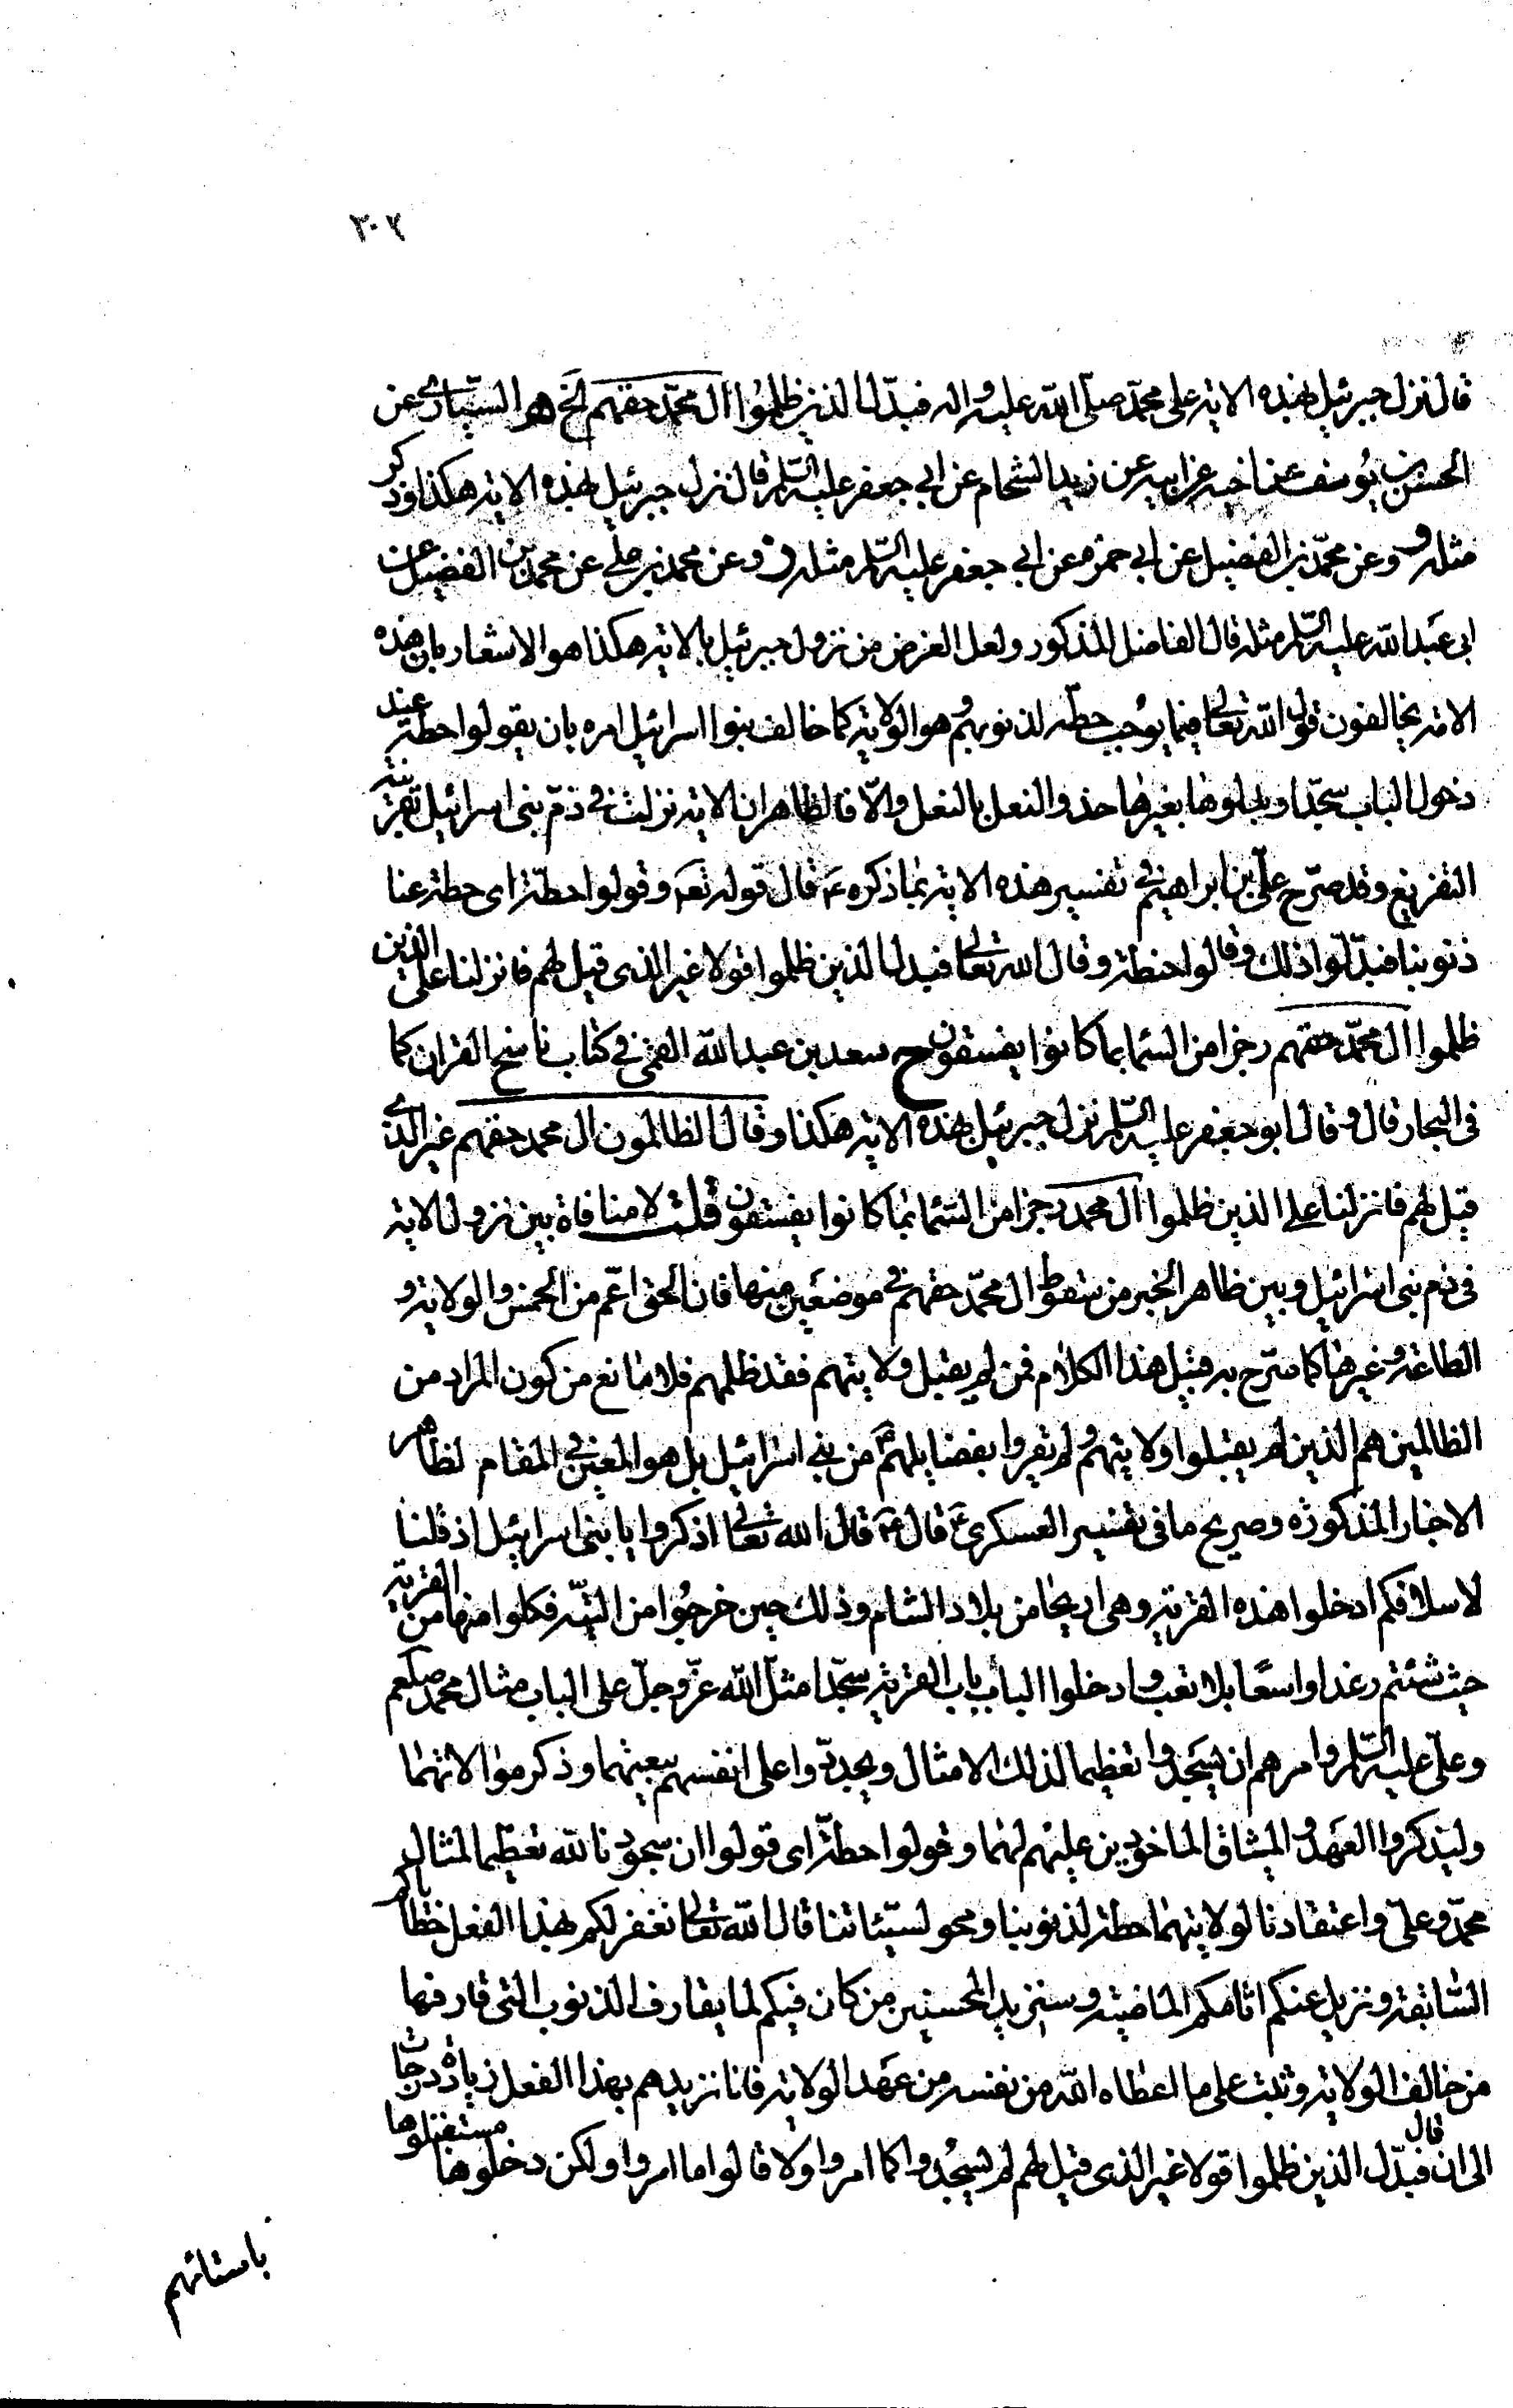 ٣٠٢
قال نزل جبرئيل بهذه الاية على محمّد صلّى الله عليه واله فبدّل الذين ظلموا ال محمّد حقهم الخ هو السيّارى عن
الحسن بن يوسف عن اخيه عن ابيه عن زيد الشحام عن ابى جعفر عليه السّلم قال نزل جبرئيل بهذه الاية هكذا وذكر
مثله و وعن محمّد بن الفضيل عن ابى حمزه عن ابى جعفر عليه السّلم مثله ز وعن محمد بن على عن محمد بن الفضيل عن
ابى عبد الله عليه السّلم مثله قال الفاضل المذكور ولعل الغرض من نزول جبرئيل بالاية هكذا هو الاشعار بان هذه
الامة يخالفون قول الله تعالى فيما يوجب حطّه لذنوبهم وهو الولاية كما خالف بنوا اسرائيل امره بان يقولوا حطة عند
دخول الباب سجّدا وبدلوها بغيرها حذو النعل بالنعل والّا فالظاهر ان الاية نزلت فى ذمّ بنى اسرائيل بقرينة
التفريع وقد صرّح علىّ بن ابراهيم فى تفسير هذه الاية بما ذكره ره قال قوله تعه وقولوا حطّة اى حطة عنا
ذنوبنا فبدّلوا ذلك وقالوا حنطة وقال الله تعالى فبدل الذين ظلموا قولا غير الذى قيل لهم فانزلنا على الذين
ظلموا ال محمّد حقهم رجزا من السّما بما كانوا يفسقون ح سعد بن عبد الله القمى فى كتاب ناسخ القران كما
فى البحار قال وقال ابو جعفر عليه السّلم نزل جبرئيل بهذه الاية هكذا وقال الظالمون ال محمد حقهم غير الذى
قيل لهم فانزلنا على الذين ظلموا ال محمد رجزا من السّما بما كانوا يفسقون قلت لا منافاة بين نزول الاية
فى ذم بنى اسرائيل وبين ظاهر الخبر من سقوط ال محمّد حقهم فى موضعين منها فان الحق اعّم من الخمس والولاية و
الطاعة وغيرها كما صرّح به قبيل هذا الكلام فمن لم يقبل ولايتهم فقد ظلمهم فلا مانع من كون المراد من
الظالمين هم الذين لم يقبلوا ولايتهم ولم يقروا بفضايلهم من بنى اسرائيل بل هو المعين فى المقام لظاهر
الاخبار المذكورة وصريح ما فى تفسير العسكرى ع قال ع قال الله تعالى اذكروا يا بنى اسرائيل اذ قلنا
لاسلافكم ادخلوا هذه القرية وهى اريحا من بلاد الشام وذلك حين خرجوا من التيّه فكلوا منها من القرية
حيث شئتم رغدا واسعًا بلا تعب وادخلوا الباب باب القرية سجّدا مثلّ الله عزّ وجلّ على الباب مثال محمد صلعم
وعلىّ عليه السّلم وامرهم ان يسجدوا تعظيما لذلك الامثال ويجددّوا على انفسهم بيعتهما وذكر موالاتهما
وليذكروا العهد والميثاق الماخوذين عليهم لهما وقولوا حطّة اى قولوا ان سجودنا لله تعظيما لمثال
محمّد وعلىّ واعتقادنا لولايتهما حطة لذنوبنا ومحو لسيّئاتنا قال الله تعالى نغفر لكم بهذا الفعل خطاياكم
السّابقة ونزيل عنكم اثامكم الماضيّه وسنزيد المحسنين من كان فيكم لم يقارف الذنوب التى قارفها
من خالف الولاية وثبت على ما اعطاه الله من نفسه من عهد الولاية فانا نزيدهم بهذا الفعل زيادة درجات
الى ان قال فبدّل الذين ظلموا قولا غير الذى قيل لهم لم يسجدوا كما امروا ولا قالوا ما امروا ولكن دخلوها مستقبلوها
باستاتهم